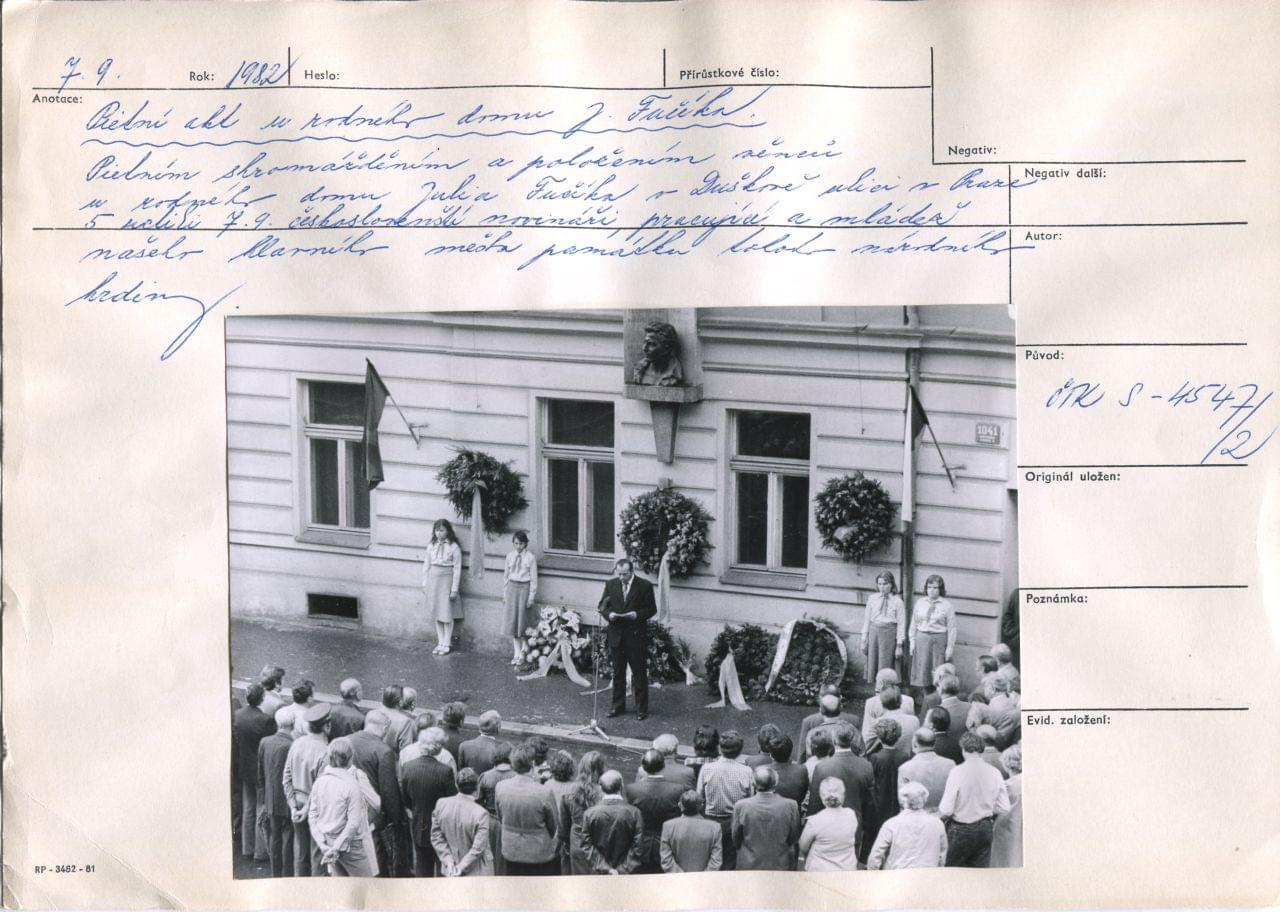 7. 9. Rok: 1982 Heslo: Přírůstkové číslo:
Anotace:
Pietní akt u rodného domu J. Fučíka.
Pietním shromážděním a položením věnců
u rodného domu Julia Fučíka v Duškově ulici v Praze
5 uctili 7.9. českoslovenští novináři pracující a mládež
našeho hlavního města památku tohoto národního
hrdiny.
Negativ:
Negativ další:
Autor:
Původ:
ČTK S-4547/
/2
Originál uložen:
Poznámka:
Evid. založení:
1041
RP - 3462 - 81